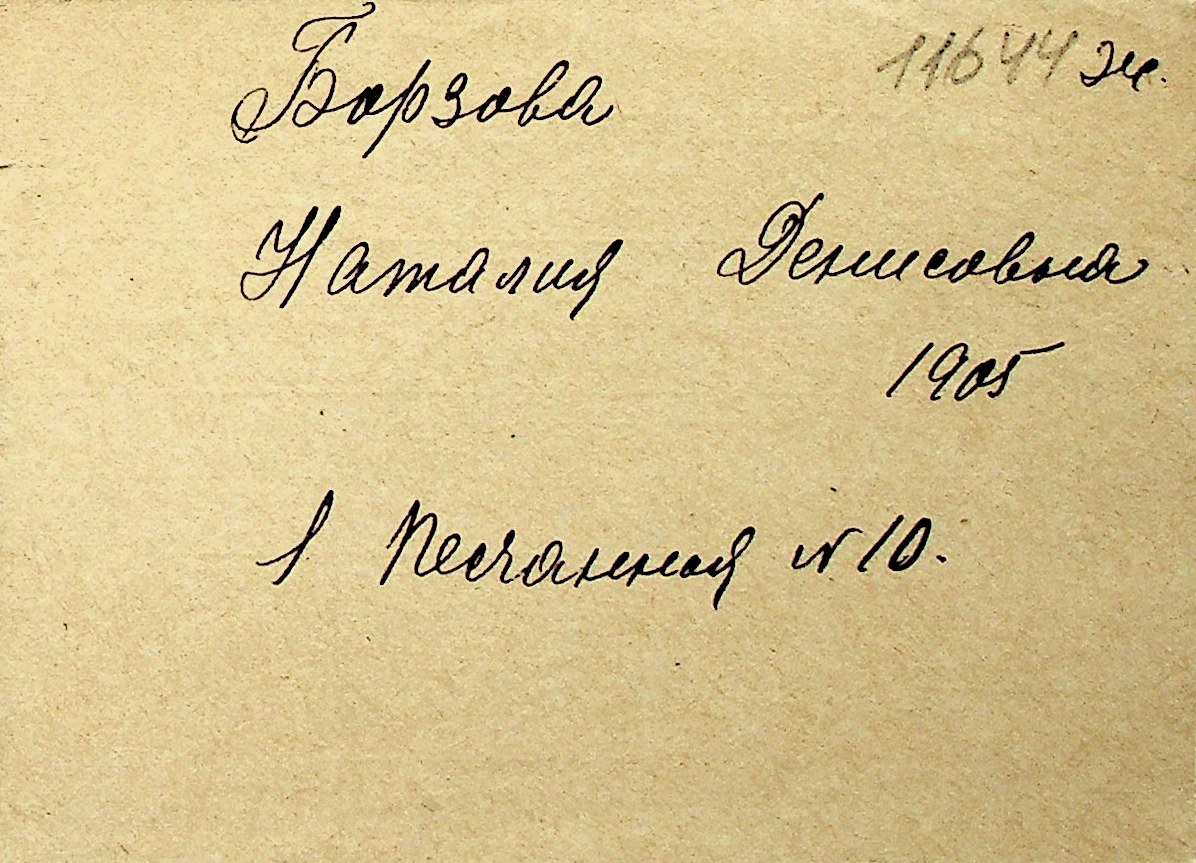 11644 Эк.
Борзова
Наталия Денисовна
1905
1 Песчанная № 10.